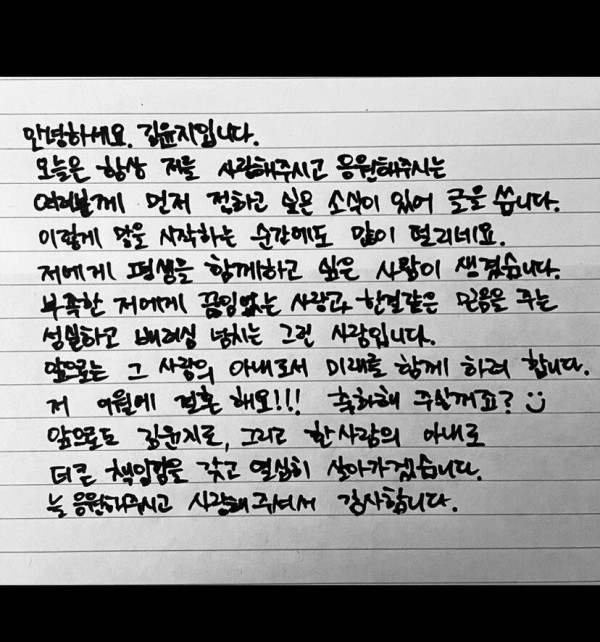 안녕하세요. 김윤지입니다.
오늘은 항상 저를 사랑해주시고 응원해주시는
여러분께 먼저 전하고 싶은 소식이 있어 글을 씁니다.
이렇게 말을 시작하는 순간에도 많이 떨리네요.
저에게 평생을 함께하고 싶은 사람이 생겼습니다.
부족한 저에게 끊임없는 사랑과, 한결같은 믿음을 주는
성실하고 배려심 넘치는 그런 사람입니다.
앞으로는 그 사람의 아내로서 미래를 함께 하려 합니다.
저 9월에 결혼 해요!!! 축하해 주실꺼죠?
앞으로도 김윤지로, 그리고 한 사람의 아내로
더 큰 책임감을 갖고 열심히 살아가겠습니다.
늘 응원해주시고 사랑해주셔서 감사합니다.